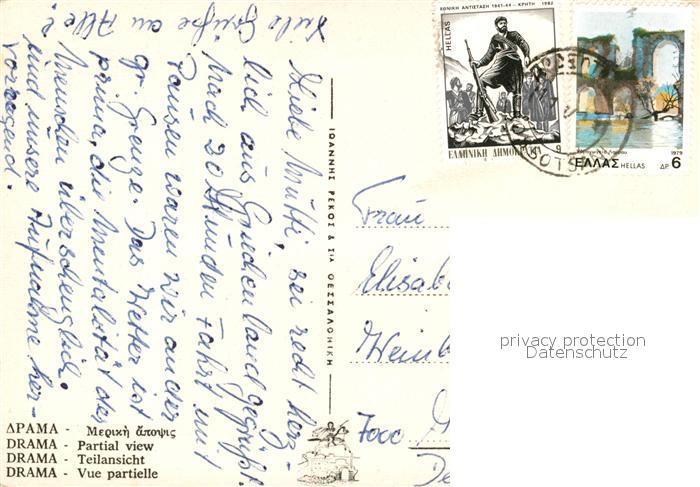 Viele Grüße an Alle!
Liebe Mutti, sei recht herz-
lich aus Griechenland gegrüßt.
Nach 20 Stunden Fahrt mit
Pausen waren wir an der
gr. Grenze. Das Wetter ist
prima, die Mentalität der
Menschen überschwenglich
und unsere Aufnahme her-
vorragend.
ΙΩΑΝΝΗΣ ΡΕΚΟΣ & ΣΙΑ ΘΕΣΣΑΛΟΝΙΚΗ
ΕΘΝΙΚΗ ΑΝΤΙΣΤΑΣΗ 1941-44 - ΚΡΗΤΗ 1982
HELLAS
ΕΛΛΗΝΙΚΗ ΔΗΜΟΚΡΑΤΙΑ 9
1979
ΕΛΛΑΣ HELLAS ΔΡ. 6
Frau
Elisab
Weinb
7000
De
privacy protection
Datenschutz
ΔΡΑΜΑ - Μερική ἄποψις
DRAMA - Partial view
DRAMA - Teilansicht
DRAMA - Vue partielle